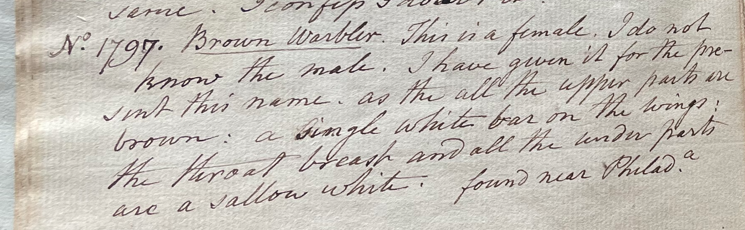 same. I confess I
No. 1797. Brown Warbler. This is a female. I do not
know the male. I have given it for the pre-
sent this name. as the all the upper parts are
brown: a single white bar on the wings:
the throat breast and all the under parts
are a sallow white. found near Philad.a